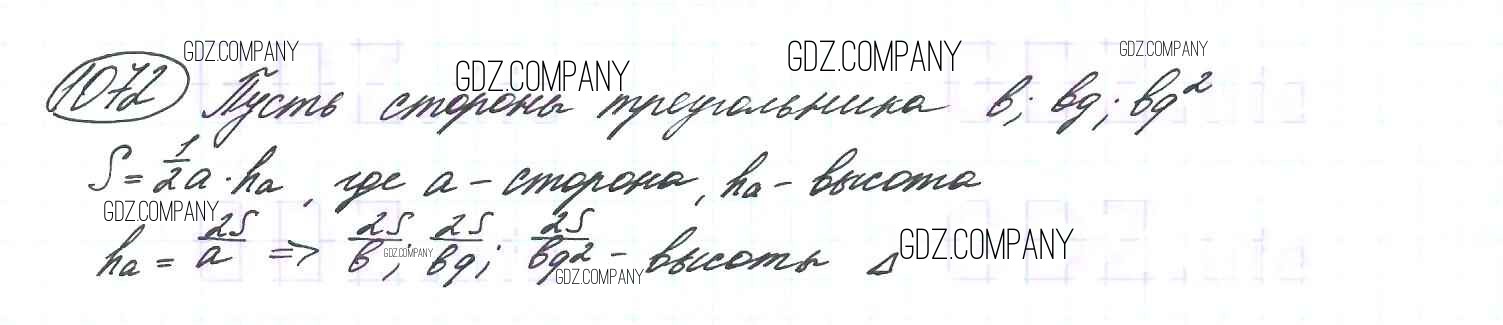 GDZ.COMPANY GDZ.COMPANY GDZ.COMPANY GDZ.COMPANY
1072 Пусть стороны треугольника b; bq; bq²
S = 1/2 a · hₐ, где a - сторона, hₐ - высота
GDZ.COMPANY
hₐ = 2S/a => 2S/b; 2S/bq; 2S/bq² - высоты Δ
GDZ.COMPANY GDZ.COMPANY GDZ.COMPANY